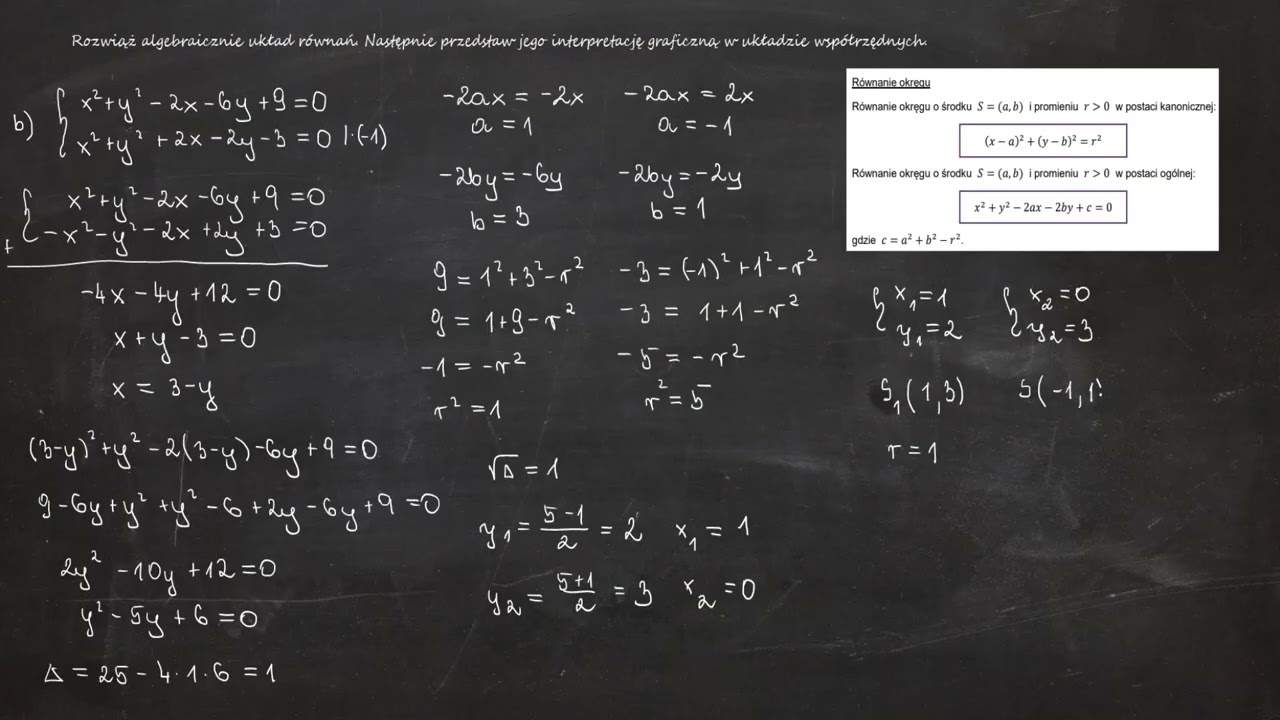 Rozwiąż algebraicznie układ równań. Następnie przedstaw jego interpretację graficzną w układzie współrzędnych.
b) { x² + y² - 2x - 6y + 9 = 0
x² + y² + 2x - 2y - 3 = 0 |·(-1)
{ x² + y² - 2x - 6y + 9 = 0
+ -x² - y² - 2x + 2y + 3 = 0
-4x - 4y + 12 = 0
x + y - 3 = 0
x = 3 - y
(3-y)² + y² - 2(3-y) - 6y + 9 = 0
9 - 6y + y² + y² - 6 + 2y - 6y + 9 = 0
2y² - 10y + 12 = 0
y² - 5y + 6 = 0
Δ = 25 - 4·1·6 = 1
-2ax = -2x
a = 1
-2by = -6y
b = 3
9 = 1² + 3² - r²
9 = 1 + 9 - r²
-1 = -r²
r² = 1
-2ax = 2x
a = -1
-2by = -2y
b = 1
-3 = (-1)² + 1² - r²
-3 = 1 + 1 - r²
-5 = -r²
r² = 5
√Δ = 1
y₁ = (5-1)/2 = 2 x₁ = 1
y₂ = (5+1)/2 = 3 x₂ = 0
Równanie okręgu
Równanie okręgu o środku S = (a, b) i promieniu r > 0 w postaci kanonicznej:
(x - a)² + (y - b)² = r²
Równanie okręgu o środku S = (a, b) i promieniu r > 0 w postaci ogólnej:
x² + y² - 2ax - 2by + c = 0
gdzie c = a² + b² - r².
{ x₁ = 1 { x₂ = 0
y₁ = 2 y₂ = 3
S₁(1,3) S(-1,1
r = 1